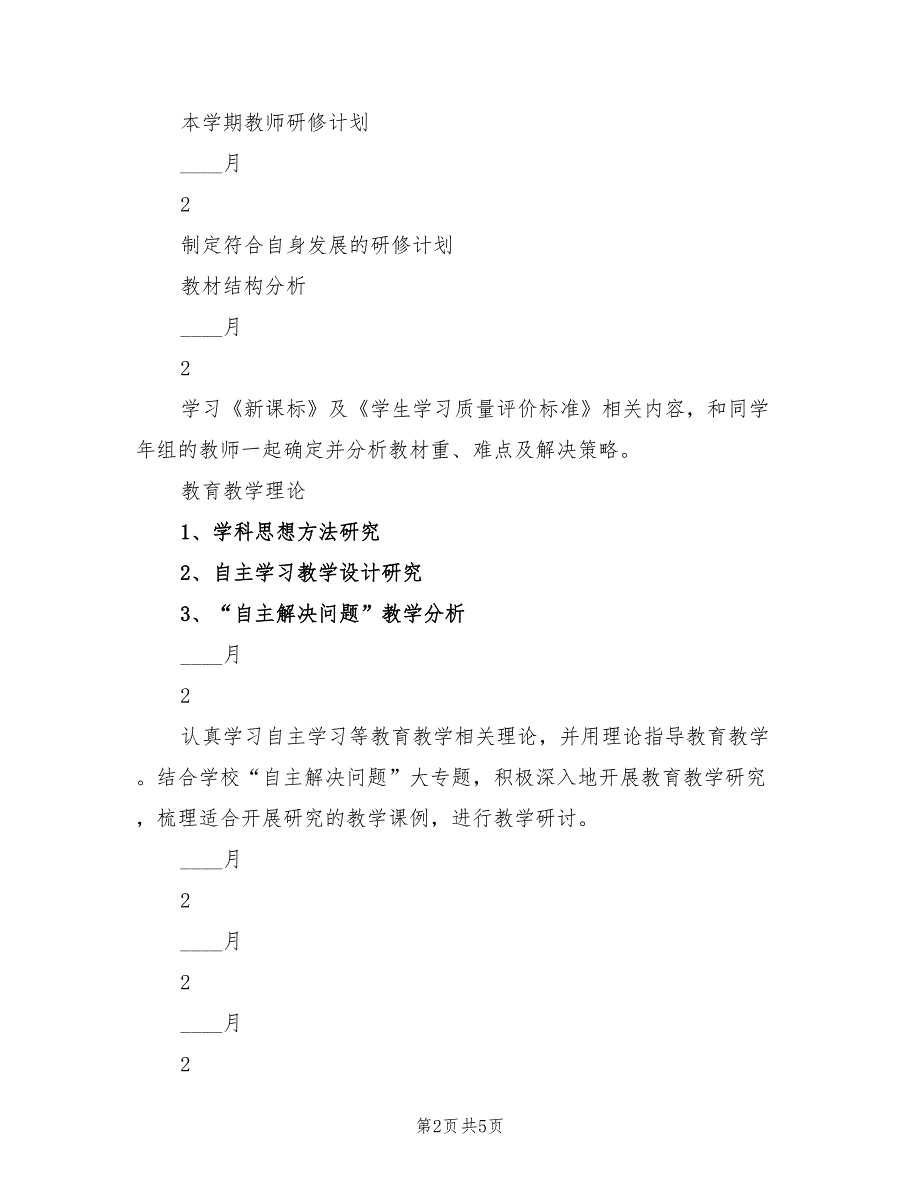 本学期教师研修计划
____月
2
制定符合自身发展的研修计划
教材结构分析
____月
2
学习《新课标》及《学生学习质量评价标准》相关内容，和同学
年组的教师一起确定并分析教材重、难点及解决策略。
教育教学理论
1、学科思想方法研究
2、自主学习教学设计研究
3、“自主解决问题”教学分析
____月
2
认真学习自主学习等教育教学相关理论，并用理论指导教育教学
。结合学校“自主解决问题”大专题，积极深入地开展教育教学研究
，梳理适合开展研究的教学课例，进行教学研讨。
____月
2
____月
2
____月
2
第2页共5页